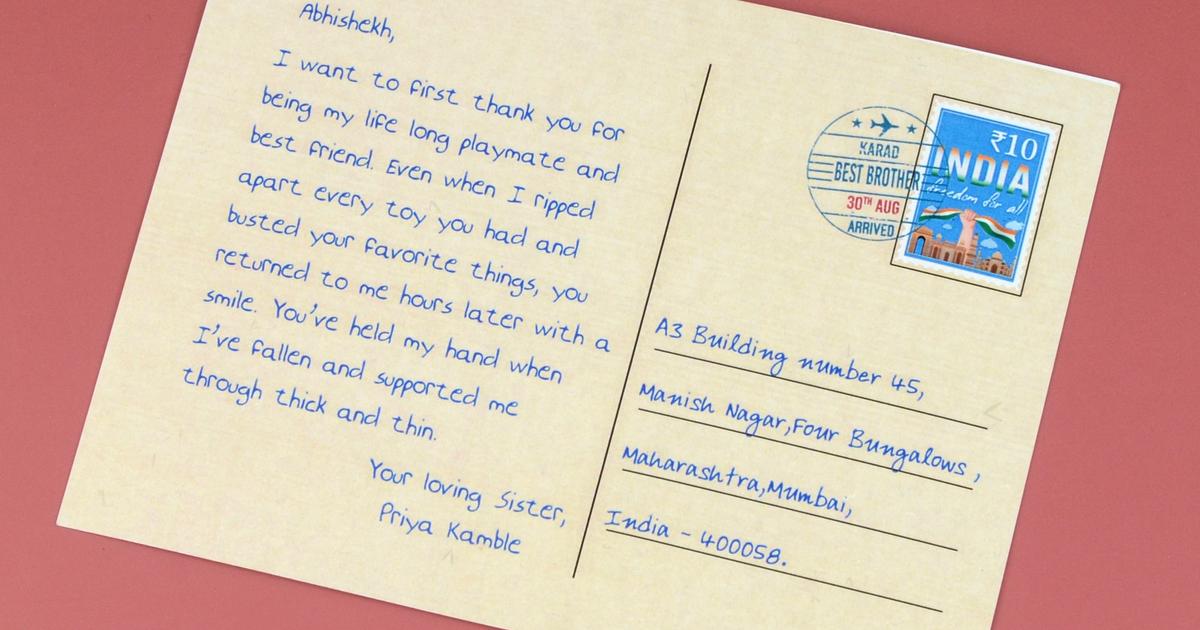 Abhishekh,
I want to first thank you for
being my life long playmate and
best friend. Even when I ripped
apart every toy you had and
busted your favorite things, you
returned to me hours later with a
smile. You've held my hand when
I've fallen and supported me
through thick and thin.
Your loving Sister,
Priya Kamble
KARAD
BEST BROTHER
30TH AUG
ARRIVED
₹10
INDIA
freedom for all
A3 Building number 45,
Manish Nagar,Four Bungalows,
Maharashtra,Mumbai,
India - 400058.